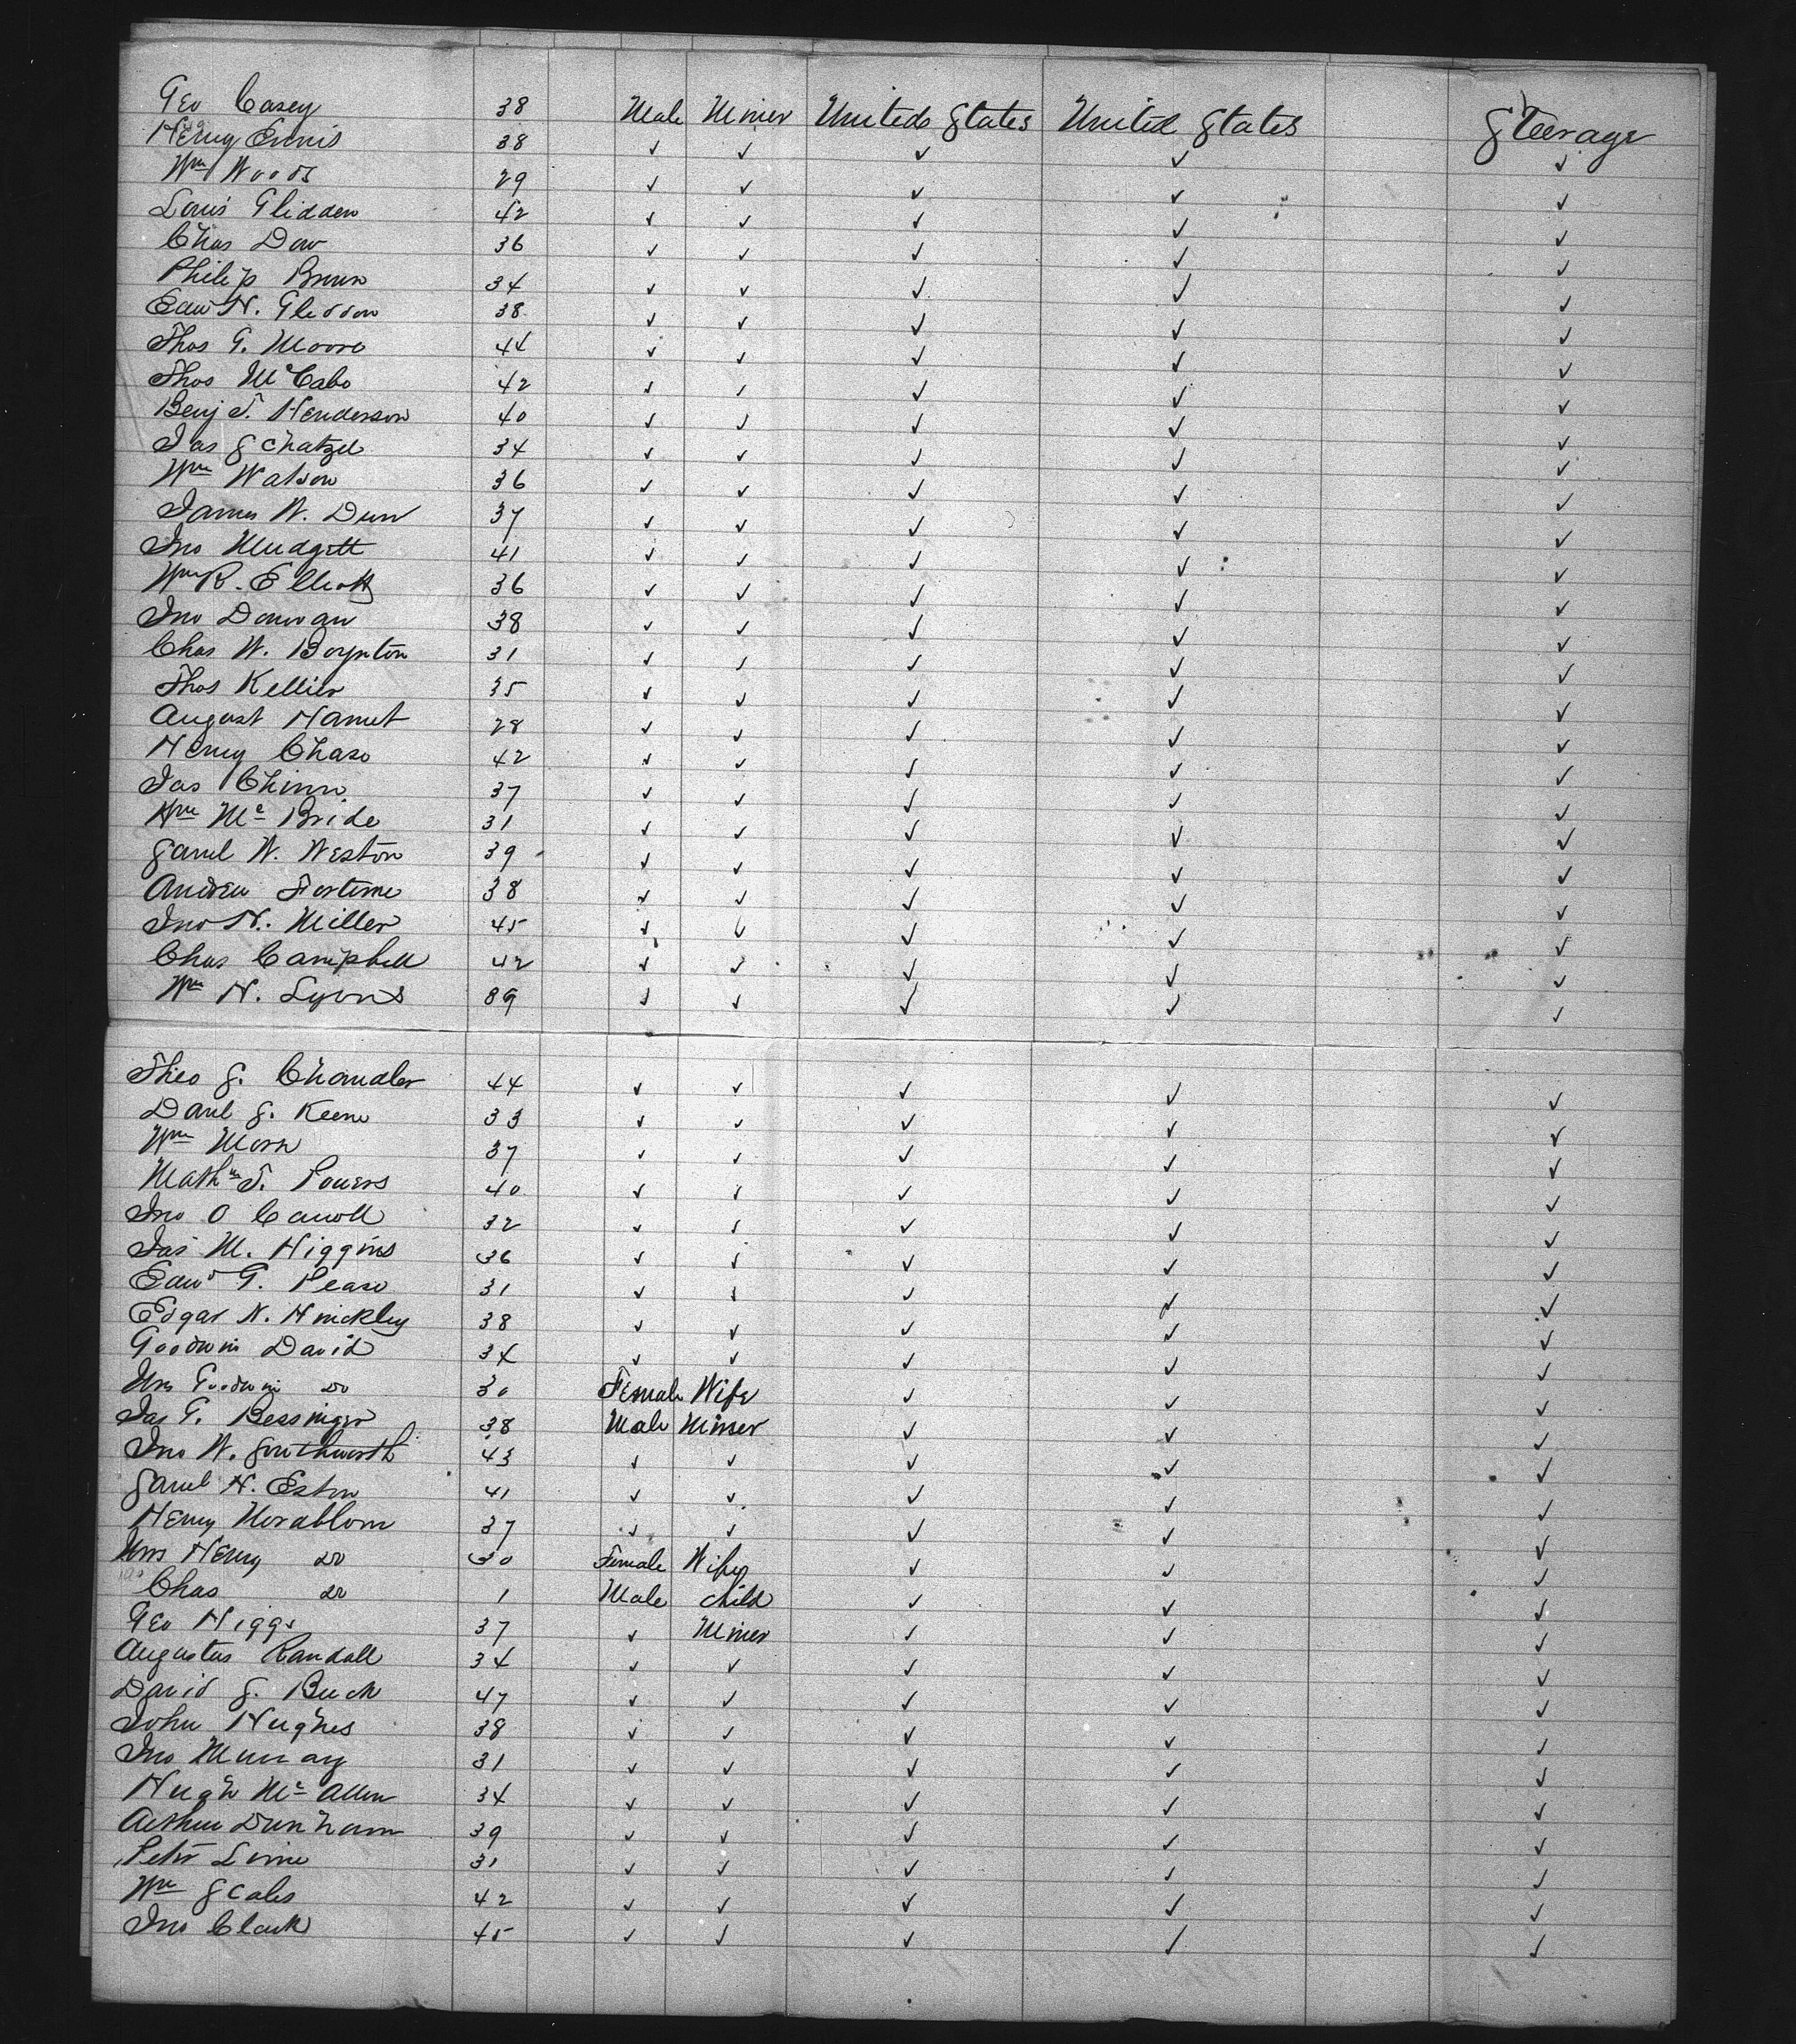 Geo Casey 38 Male Miner United States United States Steerage
Henry Ennis 38 ✓ ✓ ✓ ✓ ✓
Wm Woods 29 ✓ ✓ ✓ ✓ ✓
Louis Glidden 42 ✓ ✓ ✓ ✓ ✓
Chas Dow 36 ✓ ✓ ✓ ✓ ✓
Philip Brown 34 ✓ ✓ ✓ ✓ ✓
Edwd H. Glidden 38 ✓ ✓ ✓ ✓ ✓
Thos G. Moore 44 ✓ ✓ ✓ ✓ ✓
Thos McCabe 42 ✓ ✓ ✓ ✓ ✓
Benj T. Henderson 40 ✓ ✓ ✓ ✓ ✓
Jas Schatzel 34 ✓ ✓ ✓ ✓ ✓
Wm Watson 36 ✓ ✓ ✓ ✓ ✓
James W. Dunn 37 ✓ ✓ ✓ ✓ ✓
Jno Mudgett 41 ✓ ✓ ✓ ✓ ✓
Wm R. Elliott 36 ✓ ✓ ✓ ✓ ✓
Jno Donovan 38 ✓ ✓ ✓ ✓ ✓
Chas W. Boynton 31 ✓ ✓ ✓ ✓ ✓
Thos Kellier 35 ✓ ✓ ✓ ✓ ✓
August 28 ✓ ✓ ✓ ✓ ✓
Henry Chase 42 ✓ ✓ ✓ ✓ ✓
Jas Chinn 37 ✓ ✓ ✓ ✓ ✓
Wm Mc Bride 31 ✓ ✓ ✓ ✓ ✓
Saml W. Weston 39 ✓ ✓ ✓ ✓ ✓
Andrew Fortune 38 ✓ ✓ ✓ ✓ ✓
Jno H. Miller 45 ✓ ✓ ✓ ✓ ✓
Chas Campbell 42 ✓ ✓ ✓ ✓ ✓
Wm H. Lyons 39 ✓ ✓ ✓ ✓ ✓
Theo S. Chandler 44 ✓ ✓ ✓ ✓ ✓
Danl S. Keene 33 ✓ ✓ ✓ ✓ ✓
Wm 37 ✓ ✓ ✓ ✓ ✓
Mathw T. Powers 40 ✓ ✓ ✓ ✓ ✓
Jno O Caroll 32 ✓ ✓ ✓ ✓ ✓
Jas M. Higgins 36 ✓ ✓ ✓ ✓ ✓
Edwd G. Pease 31 ✓ ✓ ✓ ✓ ✓
Edgar N. Hinckley 38 ✓ ✓ ✓ ✓ ✓
Goodwin David 34 ✓ ✓ ✓ ✓ ✓
Mrs Goodwin do 30 Female Wife ✓ ✓ ✓
Jas G. Bessinger 38 Male Miner ✓ ✓ ✓
Jno W. Southworth 43 ✓ ✓ ✓ ✓ ✓
Saml H. Eston 41 ✓ ✓ ✓ ✓ ✓
Henry Norablom 37 ✓ ✓ ✓ ✓ ✓
Mrs Henry do 30 Female Wife ✓ ✓ ✓
Chas do 1 Male child ✓ ✓ ✓
Geo Higgs 37 ✓ Miner ✓ ✓ ✓
Augustus Randall 34 ✓ ✓ ✓ ✓ ✓
David S. Buck 47 ✓ ✓ ✓ ✓ ✓
John Hughes 38 ✓ ✓ ✓ ✓ ✓
Jno Murray 31 ✓ ✓ ✓ ✓ ✓
Hugh Mc Allen 34 ✓ ✓ ✓ ✓ ✓
Arthur Dunham 39 ✓ ✓ ✓ ✓ ✓
Peter 31 ✓ ✓ ✓ ✓ ✓
Wm Scales 42 ✓ ✓ ✓ ✓ ✓
Jno Clark 45 ✓ ✓ ✓ ✓ ✓